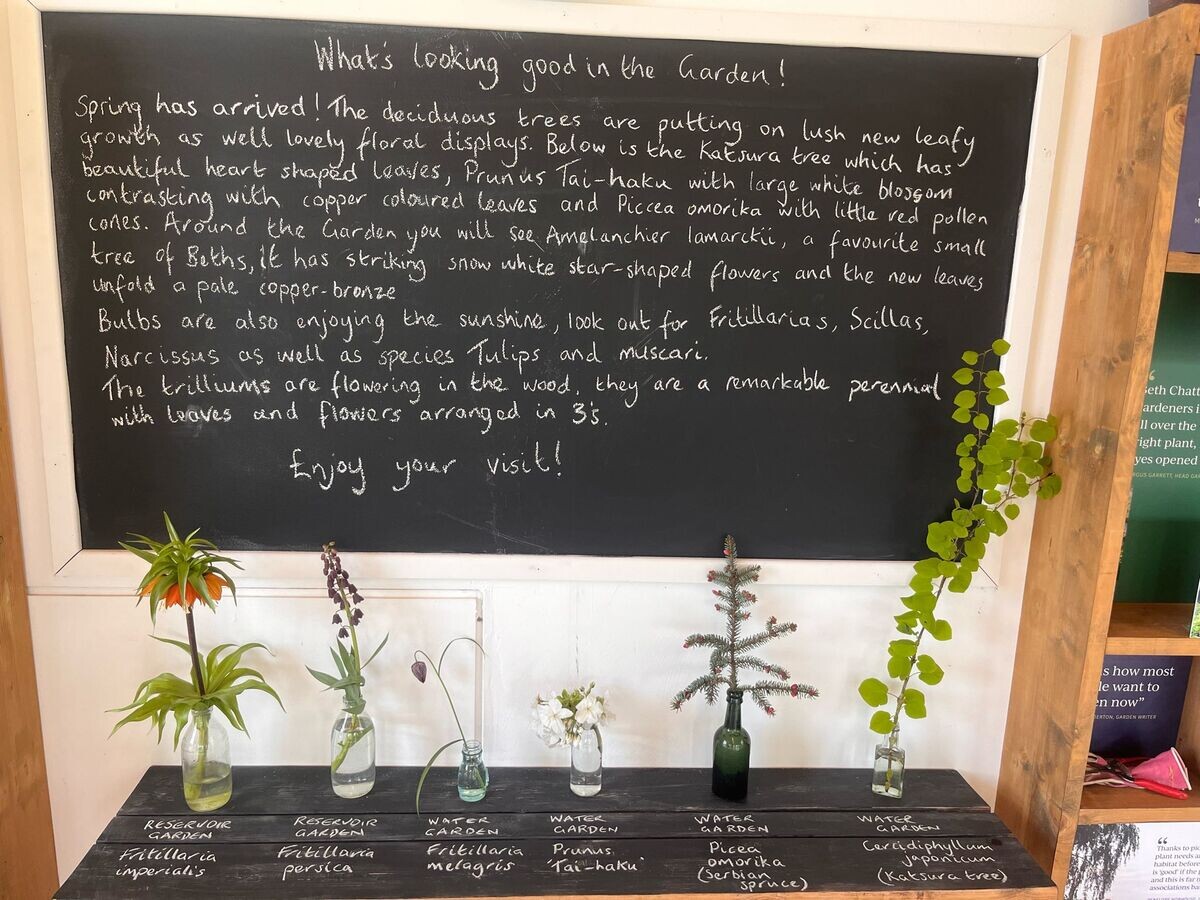 What's looking good in the Garden!
Spring has arrived! The deciduous trees are putting on lush new leafy
growth as well lovely floral displays. Below is the Katsura tree which has
beautiful heart shaped leaves, Prunus Tai-haku with large white blossom
contrasting with copper coloured leaves and Piccea omorika with little red pollen
cones. Around the Garden you will see Amelanchier lamarckii, a favourite small
tree of Beths, it has striking snow white star-shaped flowers and the new leaves
unfold a pale copper-bronze
Bulbs are also enjoying the sunshine, look out for Fritillarias, Scillas,
Narcissus as well as species Tulips and muscari.
The trilliums are flowering in the wood, they are a remarkable perennial
with leaves and flowers arranged in 3's.
Enjoy your visit!
RESERVOIR
GARDEN
Fritillaria
imperialis
RESERVOIR
GARDEN
Fritillaria
persica
WATER
GARDEN
Fritillaria
melagris
WATER
GARDEN
Prunus
'Tai-haku'
WATER
GARDEN
Picea
omorika
(Serbian
spruce)
WATER
GARDEN
Cercidiphyllum
japonicum
(Katsura tree)
“
Beth Chatt
ardeners i
ll over the
right plant,
yes opened
RGUS GARRETT, HEAD GAR
s how most
le want to
en now”
DERTON, GARDEN WRITER
“
Thanks to pio
plant needs a
habitat before
is 'good' if the p
and this is far
associations ba